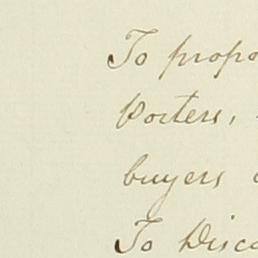 To propo
Porters,
buyers
To Disc